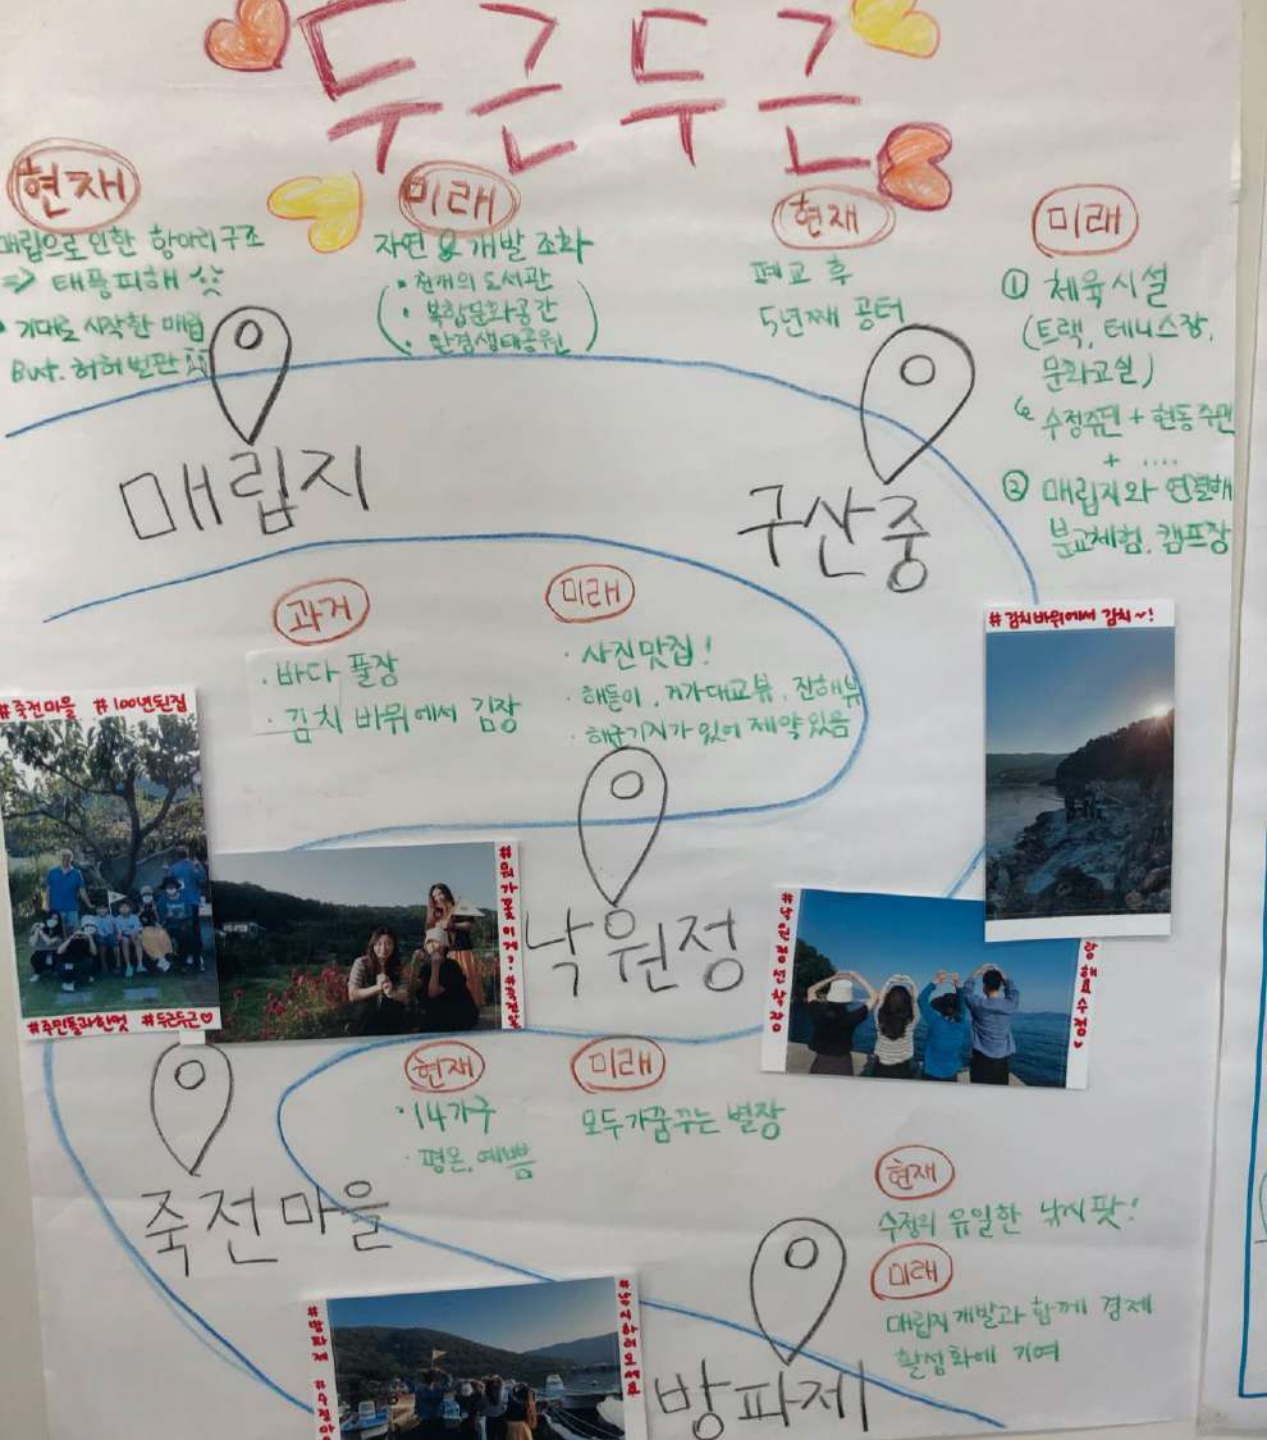 두근두근
현재
매립으로 인한 항아리구조
=> 태풍피해
· 기대로 시작한 매립
But. 허허벌판
매립지
미래
자연 & 개발 조화
· 천개의 도서관
· 복합문화공간
· 환경생태공원
현재
폐교 후
5년째 공터
구산중
미래
① 체육시설
(트랙, 테니스장,
문화교실)
수정주민 + 현동주민
+ ....
② 매립지와 연결해
분교체험, 캠프장
과거
· 바다 풀장
· 김치 바위에서 김장
미래
· 사진맛집!
· 해돋이, 거가대교뷰, 진해뷰
· 해군기지가 있어 제약있음
낙원정
#김치바위에서 김치~!
#죽전마을 #100년된집
#주민들과한컷 #두근두근♡
#뭐가꽃이게?
#낙원정선착장
현재
· 14가구
· 평온, 예쁨
미래
모두가꿈꾸는 별장
죽전마을
현재
수정의 유일한 낚시팟!
미래
매립지개발과 함께 경제
활성화에 기여
방파제
#방파제
#낚시하러오세요